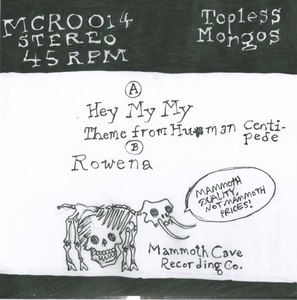 MCR0014
STEREO
45 RPM
Topless
Mongos
A
Hey My My
Theme from Human Centi-
pede
B
Rowena
MAMMOTH
QUALITY,
NOT MAMMOTH
PRICES!
Mammoth Cave
Recording Co.